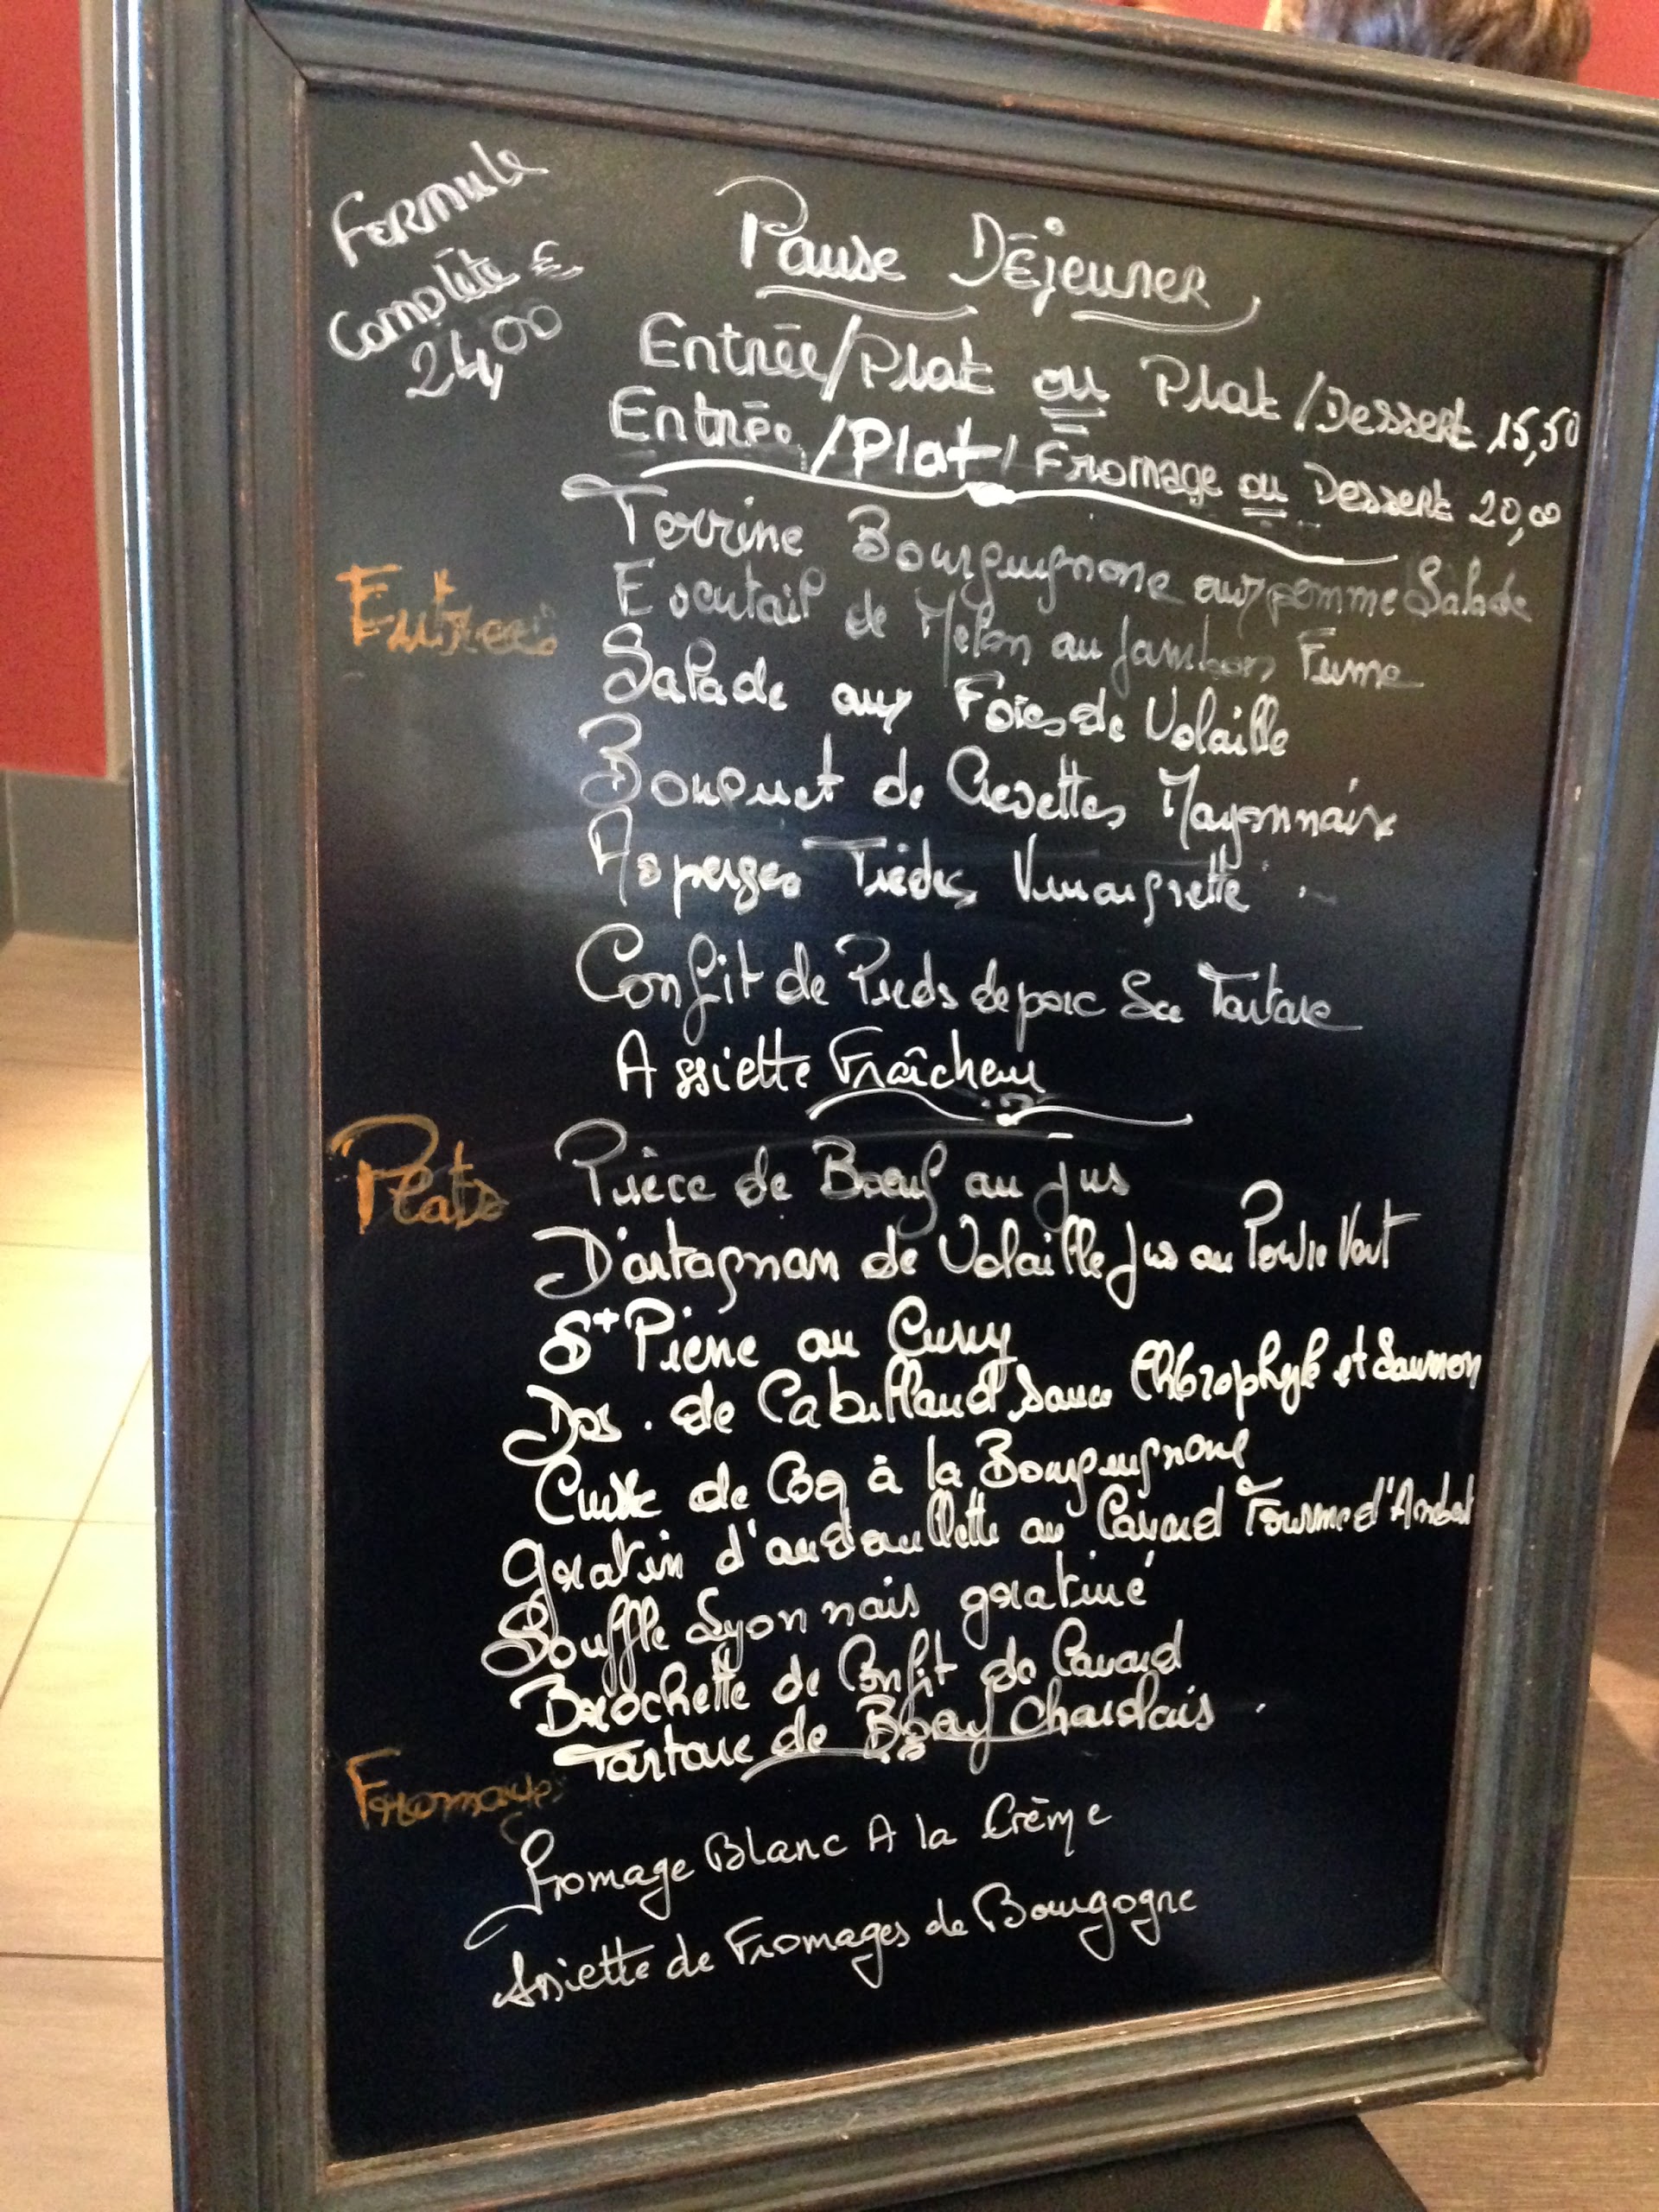 Formule
Complète €
24,00
Pause Déjeuner
Entrée/Plat ou Plat/Dessert 15,50
Entrée/Plat/Fromage ou Dessert 20,00
Entrees
Terrine Bourguignone aux pomme Salade
Eventail de Melon au Jambon Fume
Salade aux Foies de Volaille
Bouquet de Crevettes Mayonnaise
Asperges Tièdes Vinaigrette
Confit de Pieds de porc Sce Tartare
Assiette Fraîcheur
Plats
Pièce de Bœuf au jus
D'artagnan de Volaille Jus au Poivre Vert
St Pierre au Curry
Dos de Cabillaud sauce Chlorophyle et Saumon
Cuisse de Coq à la Bourguignone
gratin d'andouillette au Canard Fourme d'Ambert
Souffle Lyonnais gratiné
Brochette de Confit de Canard
Tartare de Bœuf Charolais
Fromages
Fromage Blanc A la Crème
Assiette de Fromages de Bourgogne